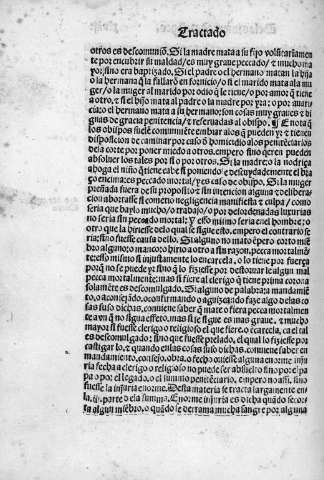 Tractado
otros es descomunió. Si la madre mata a su fijo volūtariamēn
te por encubrir su maldad/es muy graue peccado/ mucho ma
yor sino era baptizado. Si el padre o el hermano matan la hija
o la hermana q̄ la fallarō en fornicio/o si el marido mata a la mu
ger/o la muger al marido por odio q̄ le tiene/o por amor q̄ tiene
a otro, τ si el hijo mata al padre o la madre por yra; o por auari
cia: o el hermano mata a su hermano: son cosas muy graues τ di
gnas de gracia penitencia/ τ reseruadas al obispo. E nota q̄
los obispos suelē comunmēte embiar a los q̄ pueden yr τ tienen
disposicion de caminar por caso d homicidio a los penitēciarios
dela corte por poner miedo a otros, empero si no q̄eren pueden
absoluer los tales por si o por otros. Si la madre o la nodriça
ahoga el niño q̄ tiene cabe si poniendo descuydadamente el bra
ço encima: es peccado mortal/ τ es caso de obispo. Si la muger
preñada fuera de su proposito τ sin intencion alguna delibera
cion abortasse si cometio negligencia manifiesta τ culpa/ como
seria que baylo mucho/o trabajo/o por desordenadas luxurias
no seria sin peccado mortal, o no seria sin peccado en el hombre; o
otro que la hiriesse delo qual se sigue esto, empero el contrario se
ria: sino fuesse causa dello. Si alguno no mato ēpero corto miē
bro alguno; o manco o hirio a otro a sin razon, pecca mortalmē
te: esso mismo si injustamente lo encarcela, o lo tiene por fuerça
porq̄ no se puede yr sino q̄ lo fiziesse por destoruar le algun mal
pecca mortalmente: mas si fuere al clerigo q̄ tiene prima corona
solamēte es descomulgado. Si alguno de palabra: o mandamiē
to, o aconsejādo, o confirmando o aguizeando faze algo delas co
sas suso dichas, conuiene saber q̄ mate o fiera pecca mortalmen
te avn q̄ no sigua effeto, mas si se sigue es mas graue, τ mucho
mayor si fuesse clerigo o religioso el que fiere, o ēcarcela, ca el tal
es descomulgado: sino que fuesse prelado, el qual lo fiziesse por
castigar lo, τ quando enlas cosas suso dichas, conuiene saber en
mandamiento, consejo, obra, o fecho ouiesse alguna enorme inju
ria fecha a clerigo o religioso no puede ser absuelto sino por el pa
pa o por el legado, o el summo penitēciario, empero no assi, sino
fuesse la injuria enorme. Desta materia se tracta largamente en
la .ij. parte dela summa. Enorme injuria es dicha quādo se cor
ta algun miēbro, o quādo se derrama mucha sangre por alguna